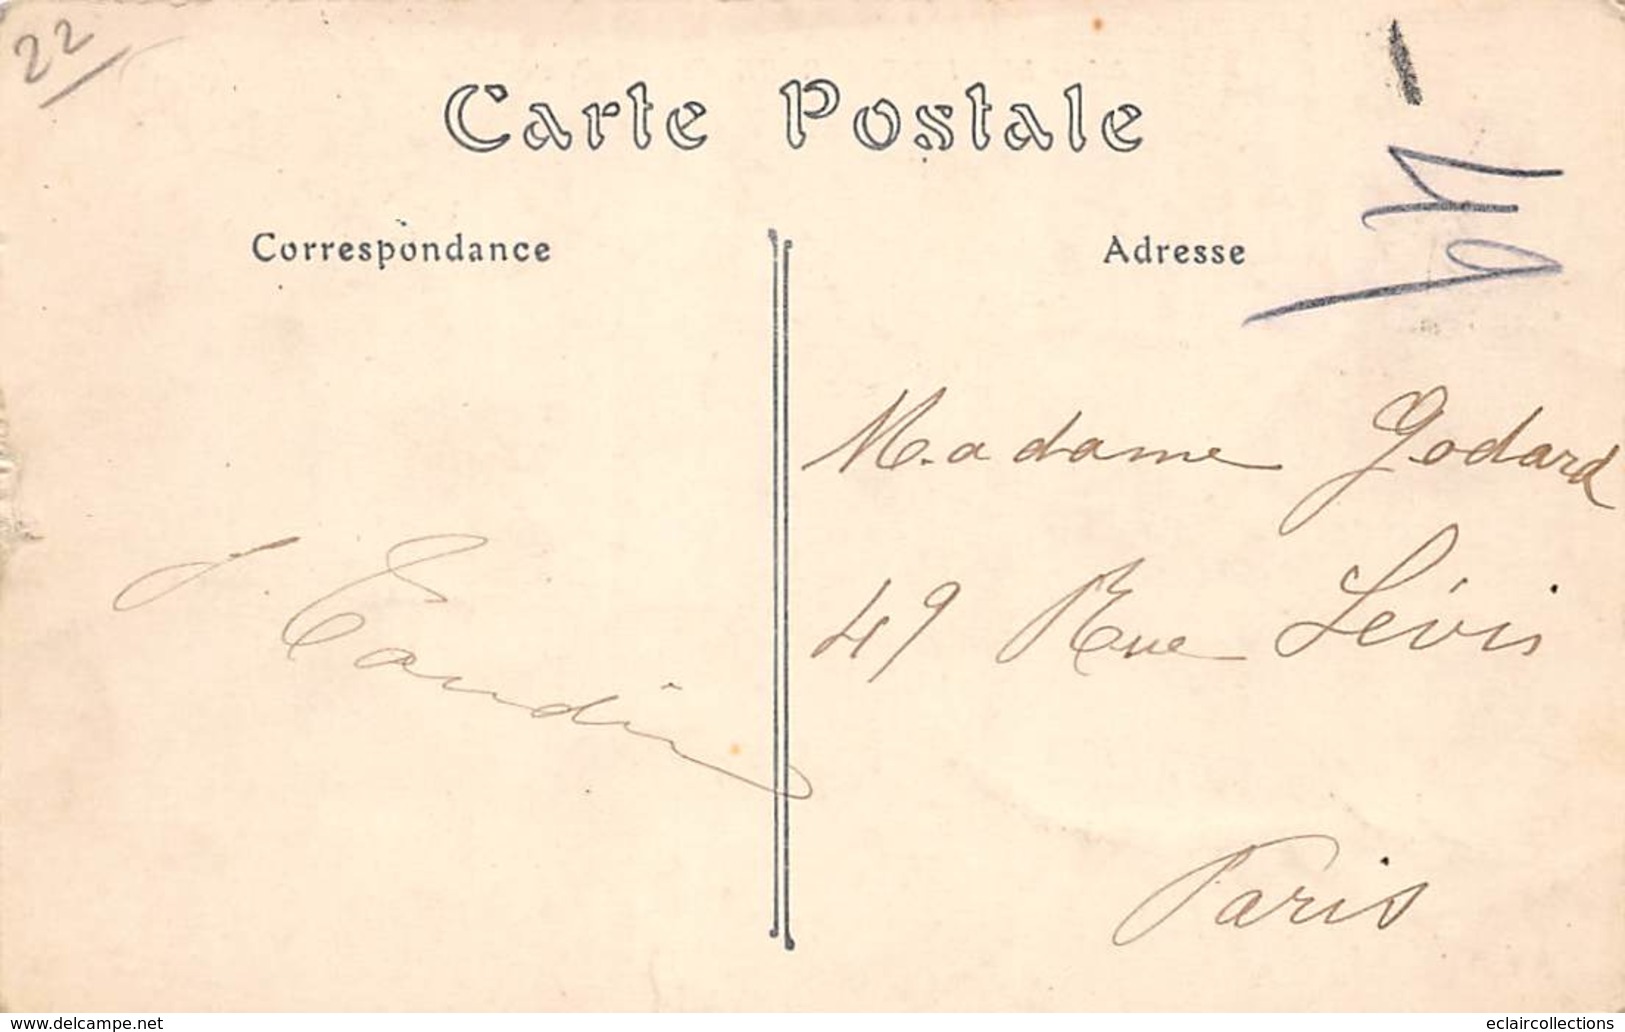 22
Carte Postale
Correspondance
Adresse
Madame Godard
49 Rue Lévis
Paris
www.delcampe.net
eclaircollections